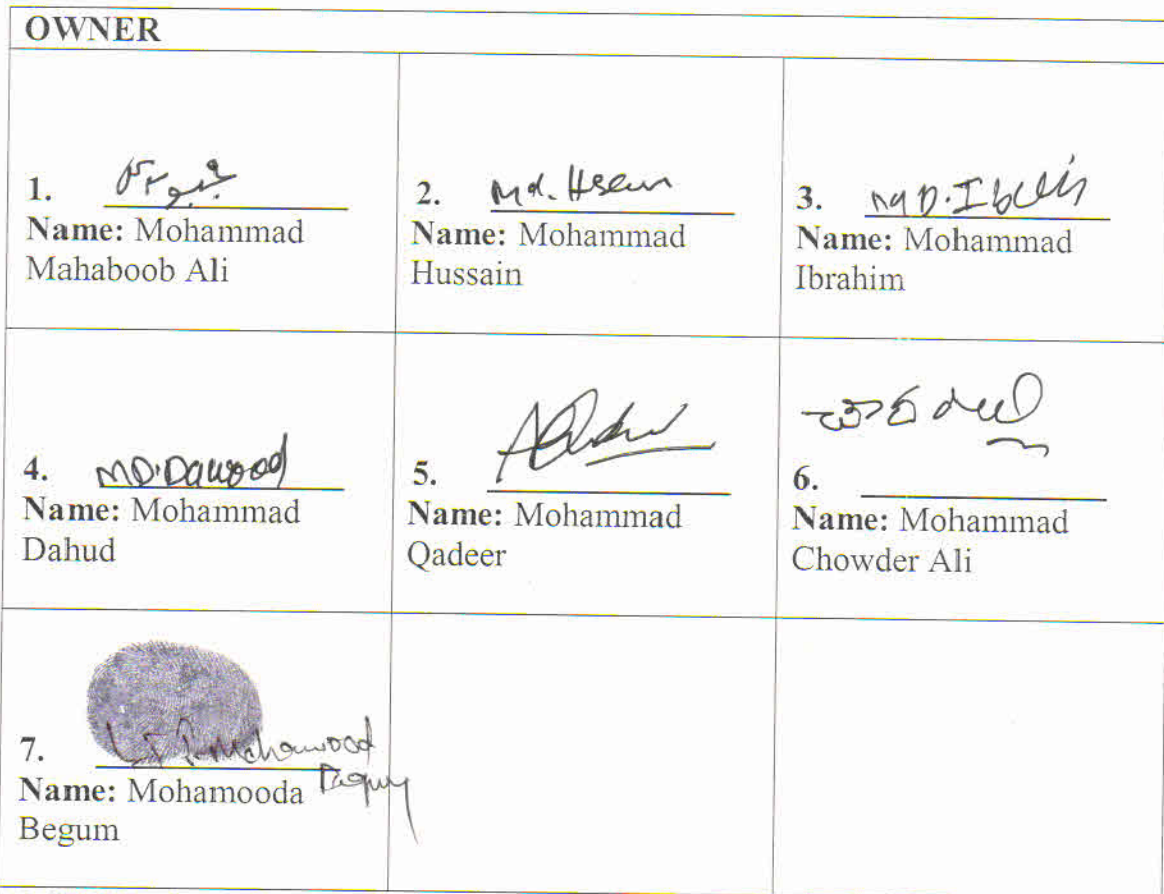 OWNER
1.
Name: Mohammad
Mahaboob Ali
2. Md. Hsein
Name: Mohammad
Hussain
3. MD.
Name: Mohammad
Ibrahim
4. MD. Dawood
Name: Mohammad
Dahud
5.
Name: Mohammad
Qadeer
6.
Name: Mohammad
Chowder Ali
7. Mohamood
Begum
Name: Mohamooda
Begum